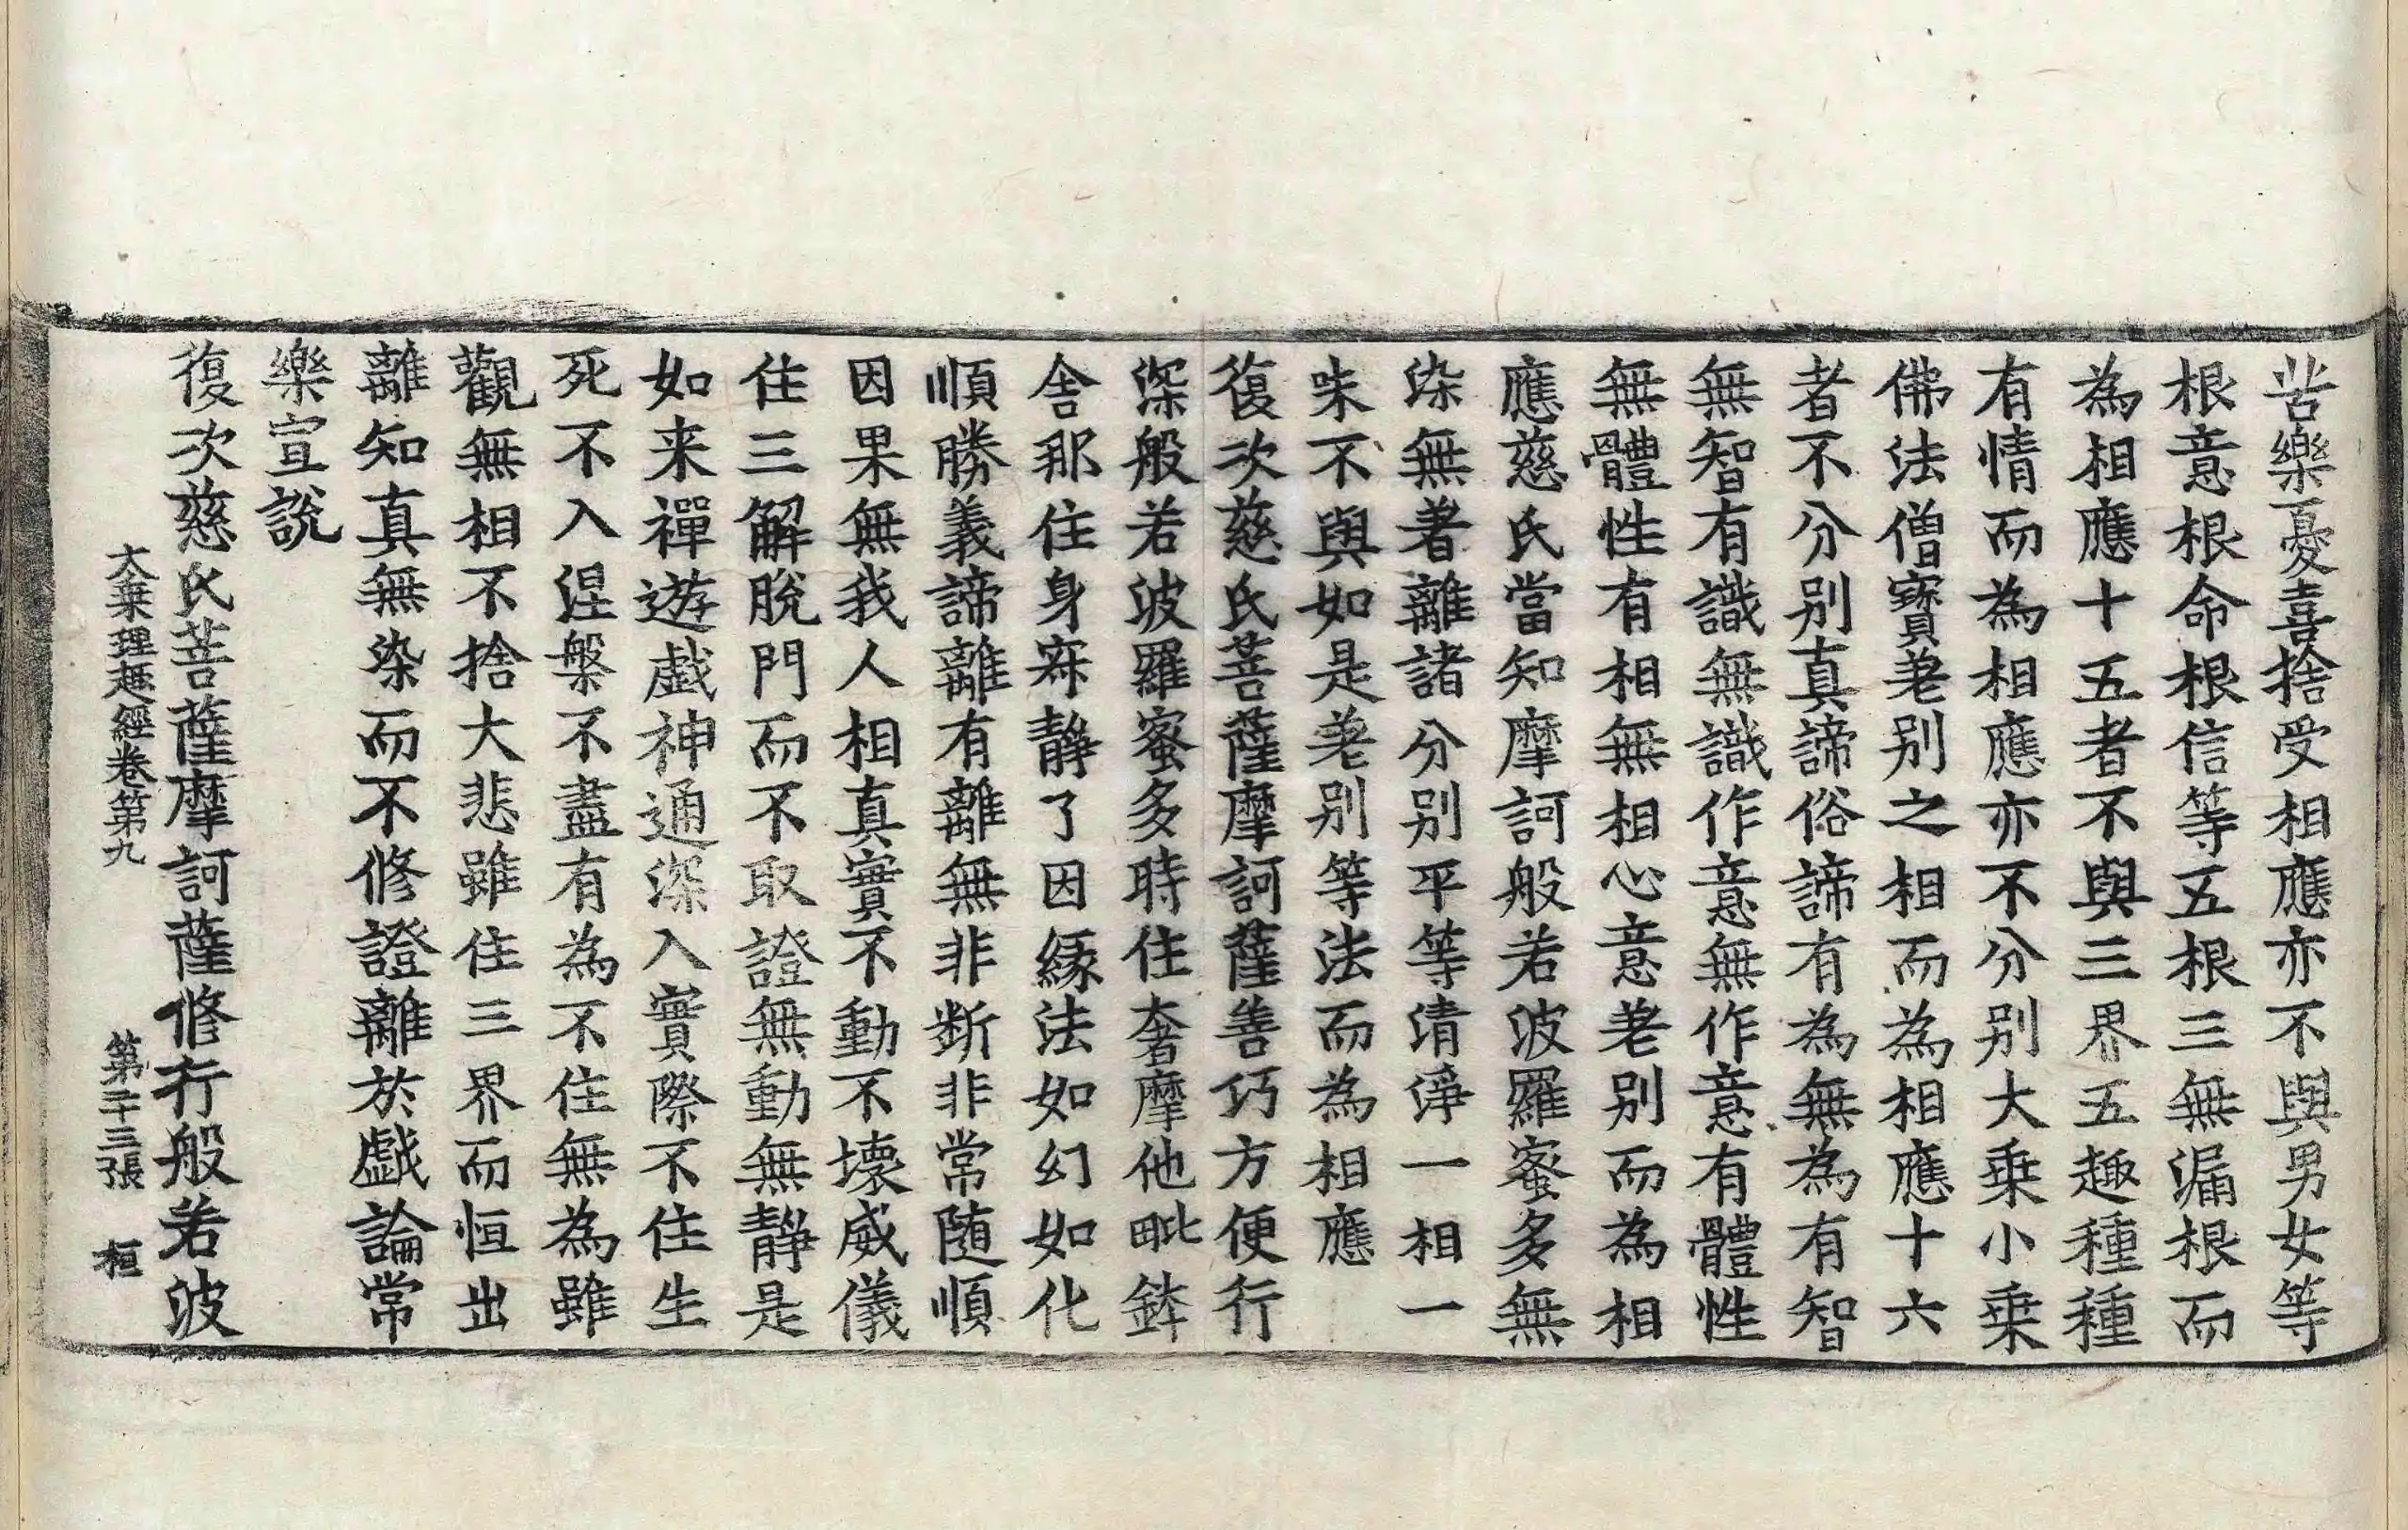 苦樂憂喜捨受相應亦不與男女等
根意根命根信等五根三無漏根而
為相應十五者不與三界五趣種種
有情而為相應亦不分別大乗小乗
佛法僧寶差别之相而為相應十六
者不分别真諦俗諦有為無為有智
無智有識無識作意無作意有體性
無體性有相無相心意差别而為相
應慈氏當知摩訶般若波羅蜜多無
染無著離諸分别平等清淨一相一
味不與如是差别等法而為相應
復次慈氏菩薩摩訶薩善巧方便行
深般若波羅蜜多時住奢摩他毗鉢
舍那住身寂靜了因緣法如幻如化
順勝義諦離有離無非断非常随順
因果無我人相真實不動不壞威儀
住三解脫門而不取證無動無靜是
如来禪遊戯神通深入實際不住生
死不入涅槃不盡有為不住無為雖
觀無相不捨大悲雖住三界而恒出
離知真無染而不修證離於戯論常
樂宣説
復次慈氏菩薩摩訶薩修行般若波
大乗理趣經卷第九　第二十三張　桓